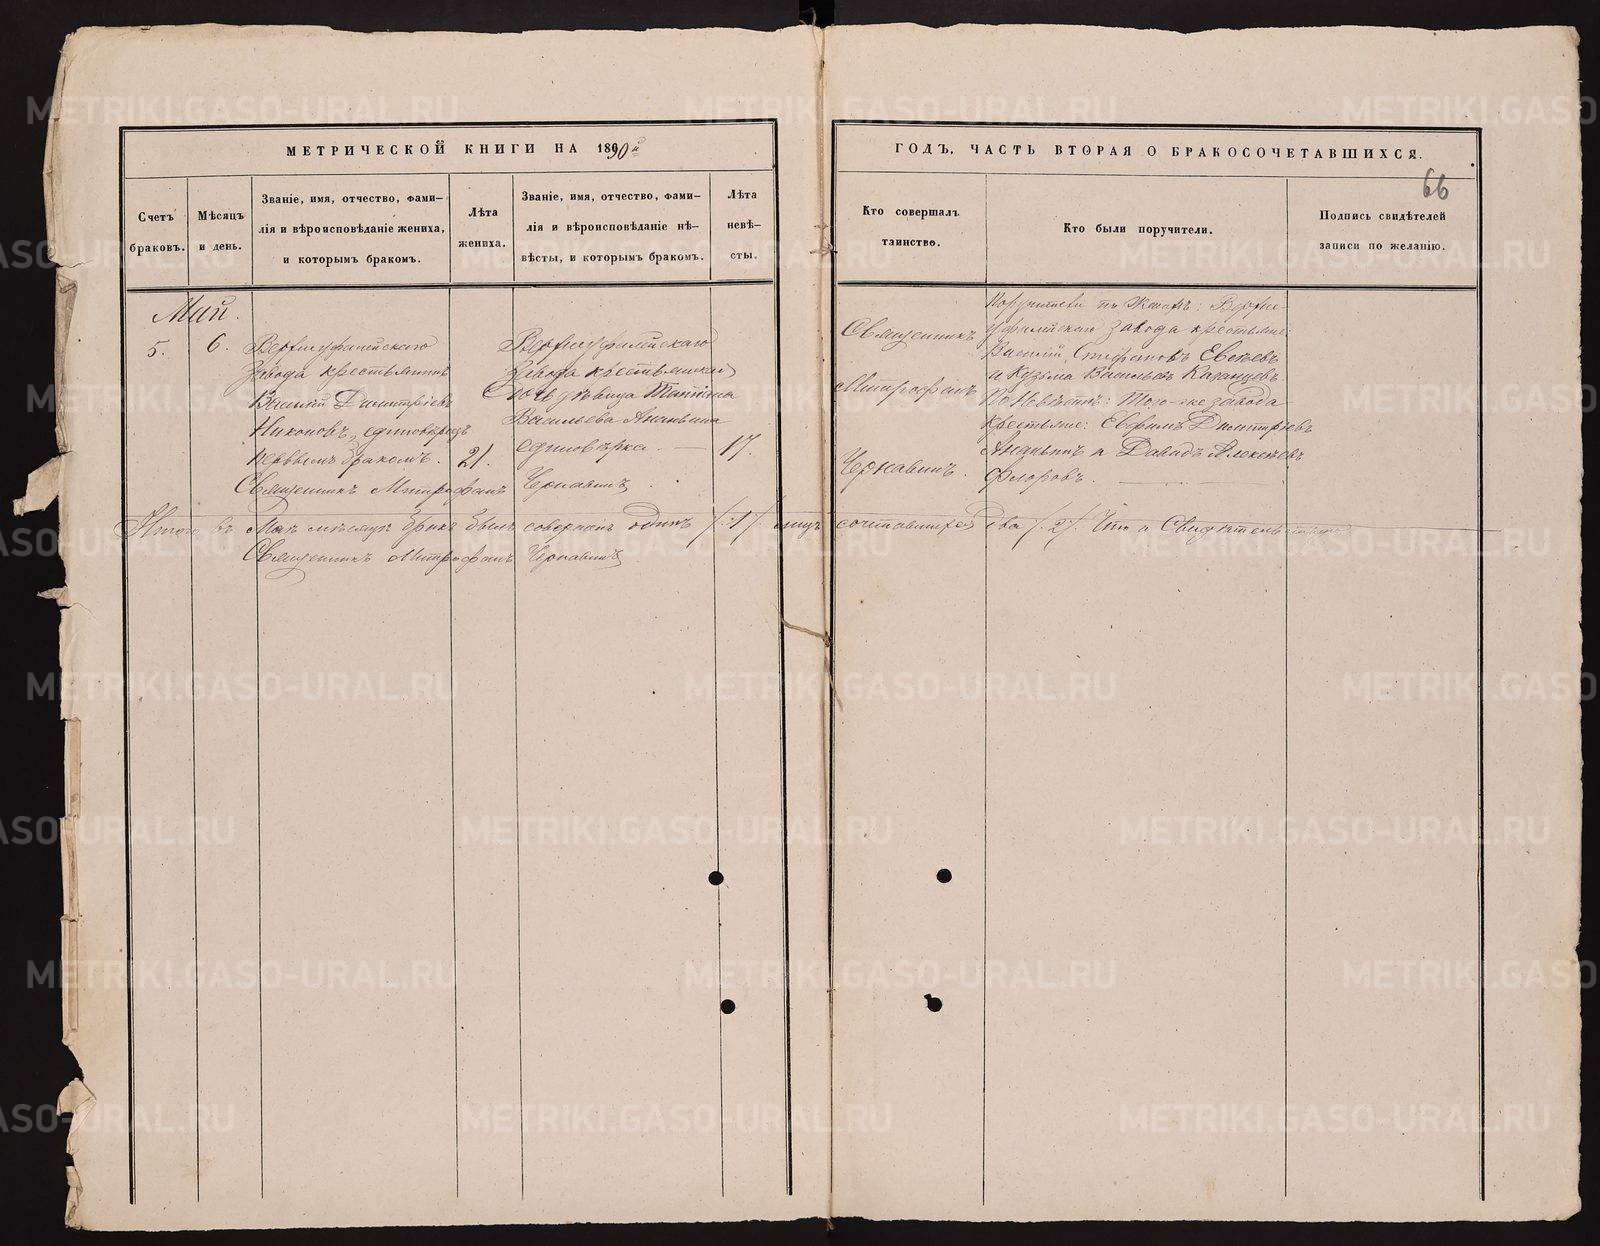 МЕТРИЧЕСКОЙ КНИГИ НА 1890й
ГОДЪ, ЧАСТЬ ВТОРАЯ О БРАКОСОЧЕТАВШИХСЯ.
66
Счетъ
браковъ.
Мѣсяцъ
и день.
Званіе, имя, отчество, фами-
лія и вѣроисповѣданіе жениха,
и которымъ бракомъ.
Лѣта
жениха.
Званіе, имя, отчество, фами-
лія и вѣроисповѣданіе нѣ-
вѣсты, и которымъ бракомъ.
Лѣта
невѣ-
сты.
Кто совершалъ
таинство.
Кто были поручители.
Подпись свидѣтелей
записи по желанію.
Май.
5.
6.
Верхнеуфалейскаго
Завода крестьянинъ
Василій Димитріевъ
Никоновъ, единовѣрецъ
первымъ бракомъ.
21.
Верхнеуфалейскаго
Завода крестьянская
Дочь дѣвица Татіана
Васильева Ананьина
единовѣрка.
17.
Священникъ
Митрофанъ
Чернавинъ.
Поручители по Женихѣ: Верхне-
уфалейскаго завода крестьяне:
Василій Стефановъ Евсѣевъ
и Кузьма Васильевъ Казанцевъ
По Невѣстѣ: Того-же завода
крестьяне: Евфимъ Димитріевъ
Ананьинъ и Давидъ Алексѣевъ
Флоровъ.
Священникъ Митрофанъ Чернавинъ.
Итого въ Маѣ мѣсяцѣ бракъ былъ совершенъ одинъ /1/ лицъ сочетавшихся два /2/ Что и Свидѣтельствуемъ
Священникъ Митрофанъ Чернавинъ
METRIKI.GASO-URAL.RU